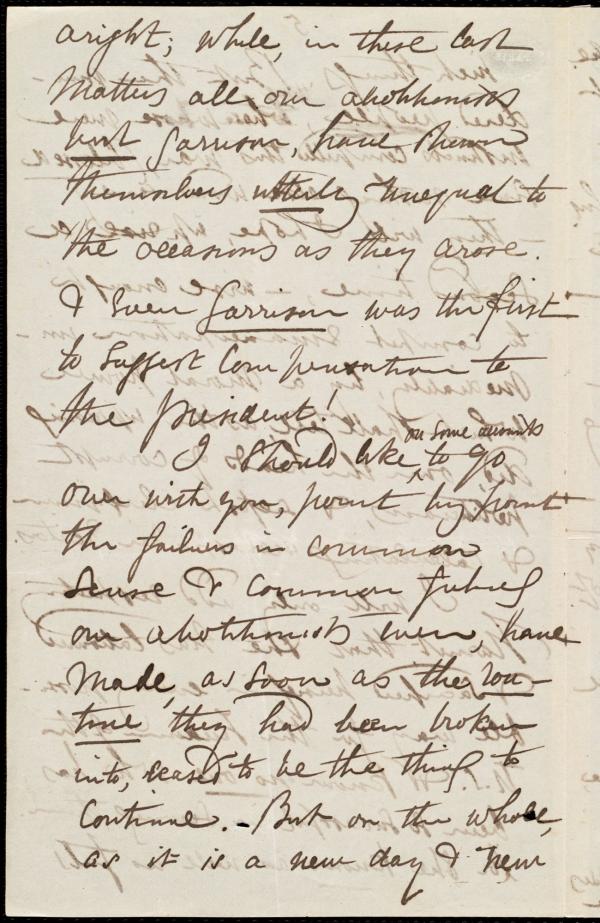 aright; while, in these last
matters all our abolitionists
but Garrison, have shown
themselves utterly unequal to
the occasions as they arose.
& even Garrison was the first
to suggest Compensation to
the president!
I should like on some accounts to go
over with you, point by point
the failures in common
sense & common feeling
our abolitionists even, have
made, as soon as the rou-
tine they had been broken
into, ceased to be the thing to
continue. - But on the whole,
as it is a new day & new